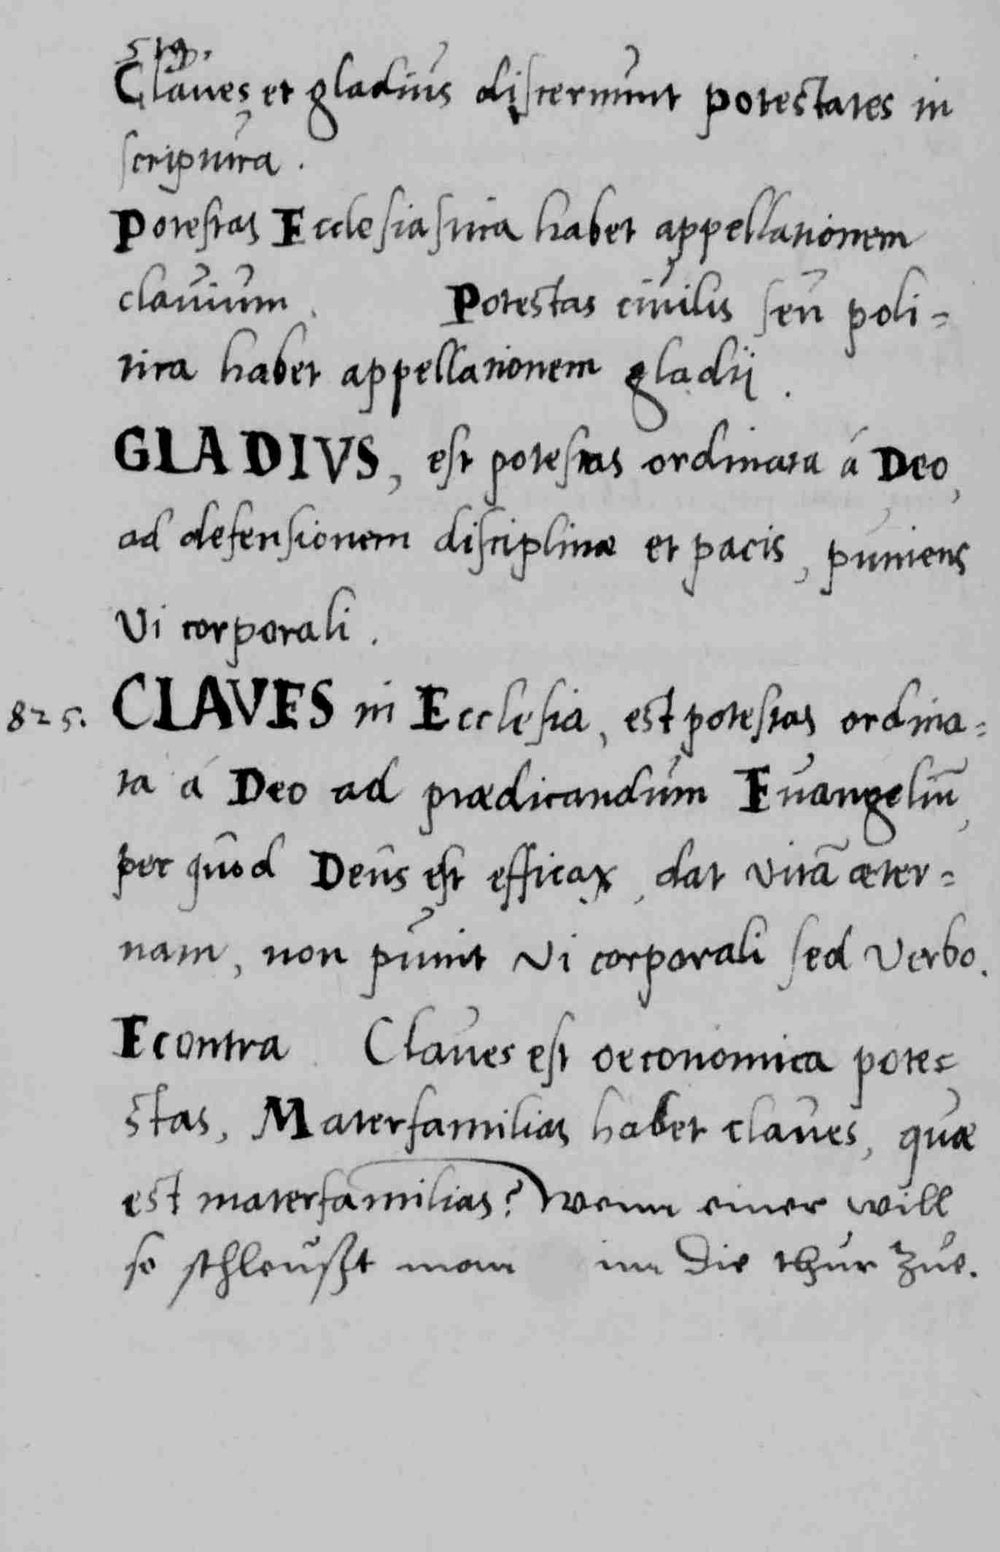 519.
Claues et gladius discernunt potestates in
scriptura.
Potestas Ecclesiastica habet appellationem
clauium. Potestas ciuilis seu poli=
tica habet appellationem gladij.
GLADIVS, est potestas ordinata á Deo,
ad defensionem disciplinæ et pacis, puniens
vi corporali.
825. CLAVES in Ecclesia, est potestas ordina=
ta á Deo ad prædicandum Euangeliū,
per quod Deus est efficax, dat vitā æter=
nam, non punit vi corporali sed verbo.
Econtra Claues est oeconomica potes=
stas, Materfamilias habet claues, quæ
est materfamilias? Wenn einer will
so schleußt man im die thur zue.